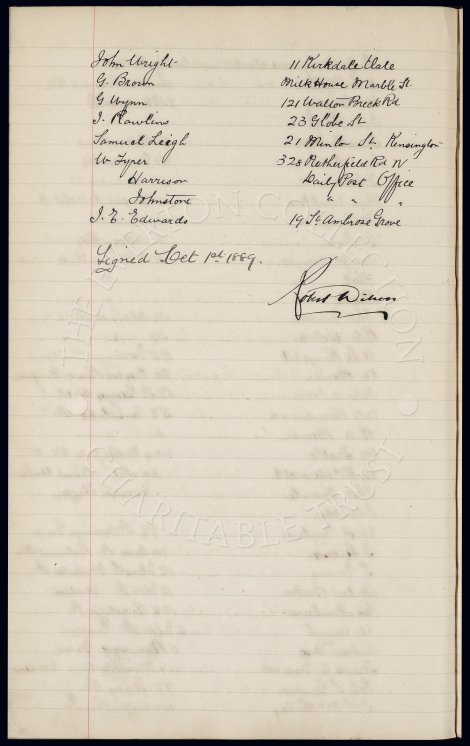 John Wright 11 Kirkdale Vale
G. Brown Milk House Marble St.
G Wynn 121 Walton Breck Rd
J. Rawlins 23 Globe St
Samuel Leigh 21 Minto St Kensington
W Tyrer 328 Netherfield Rd N
Harrison Daily Post Office
Johnstone " " "
J. Edwards 19 St Ambrose Grove
Signed Oct 1st 1889.
Robert Wilson
THE EVERTON COLLECTION
CHARITABLE TRUST